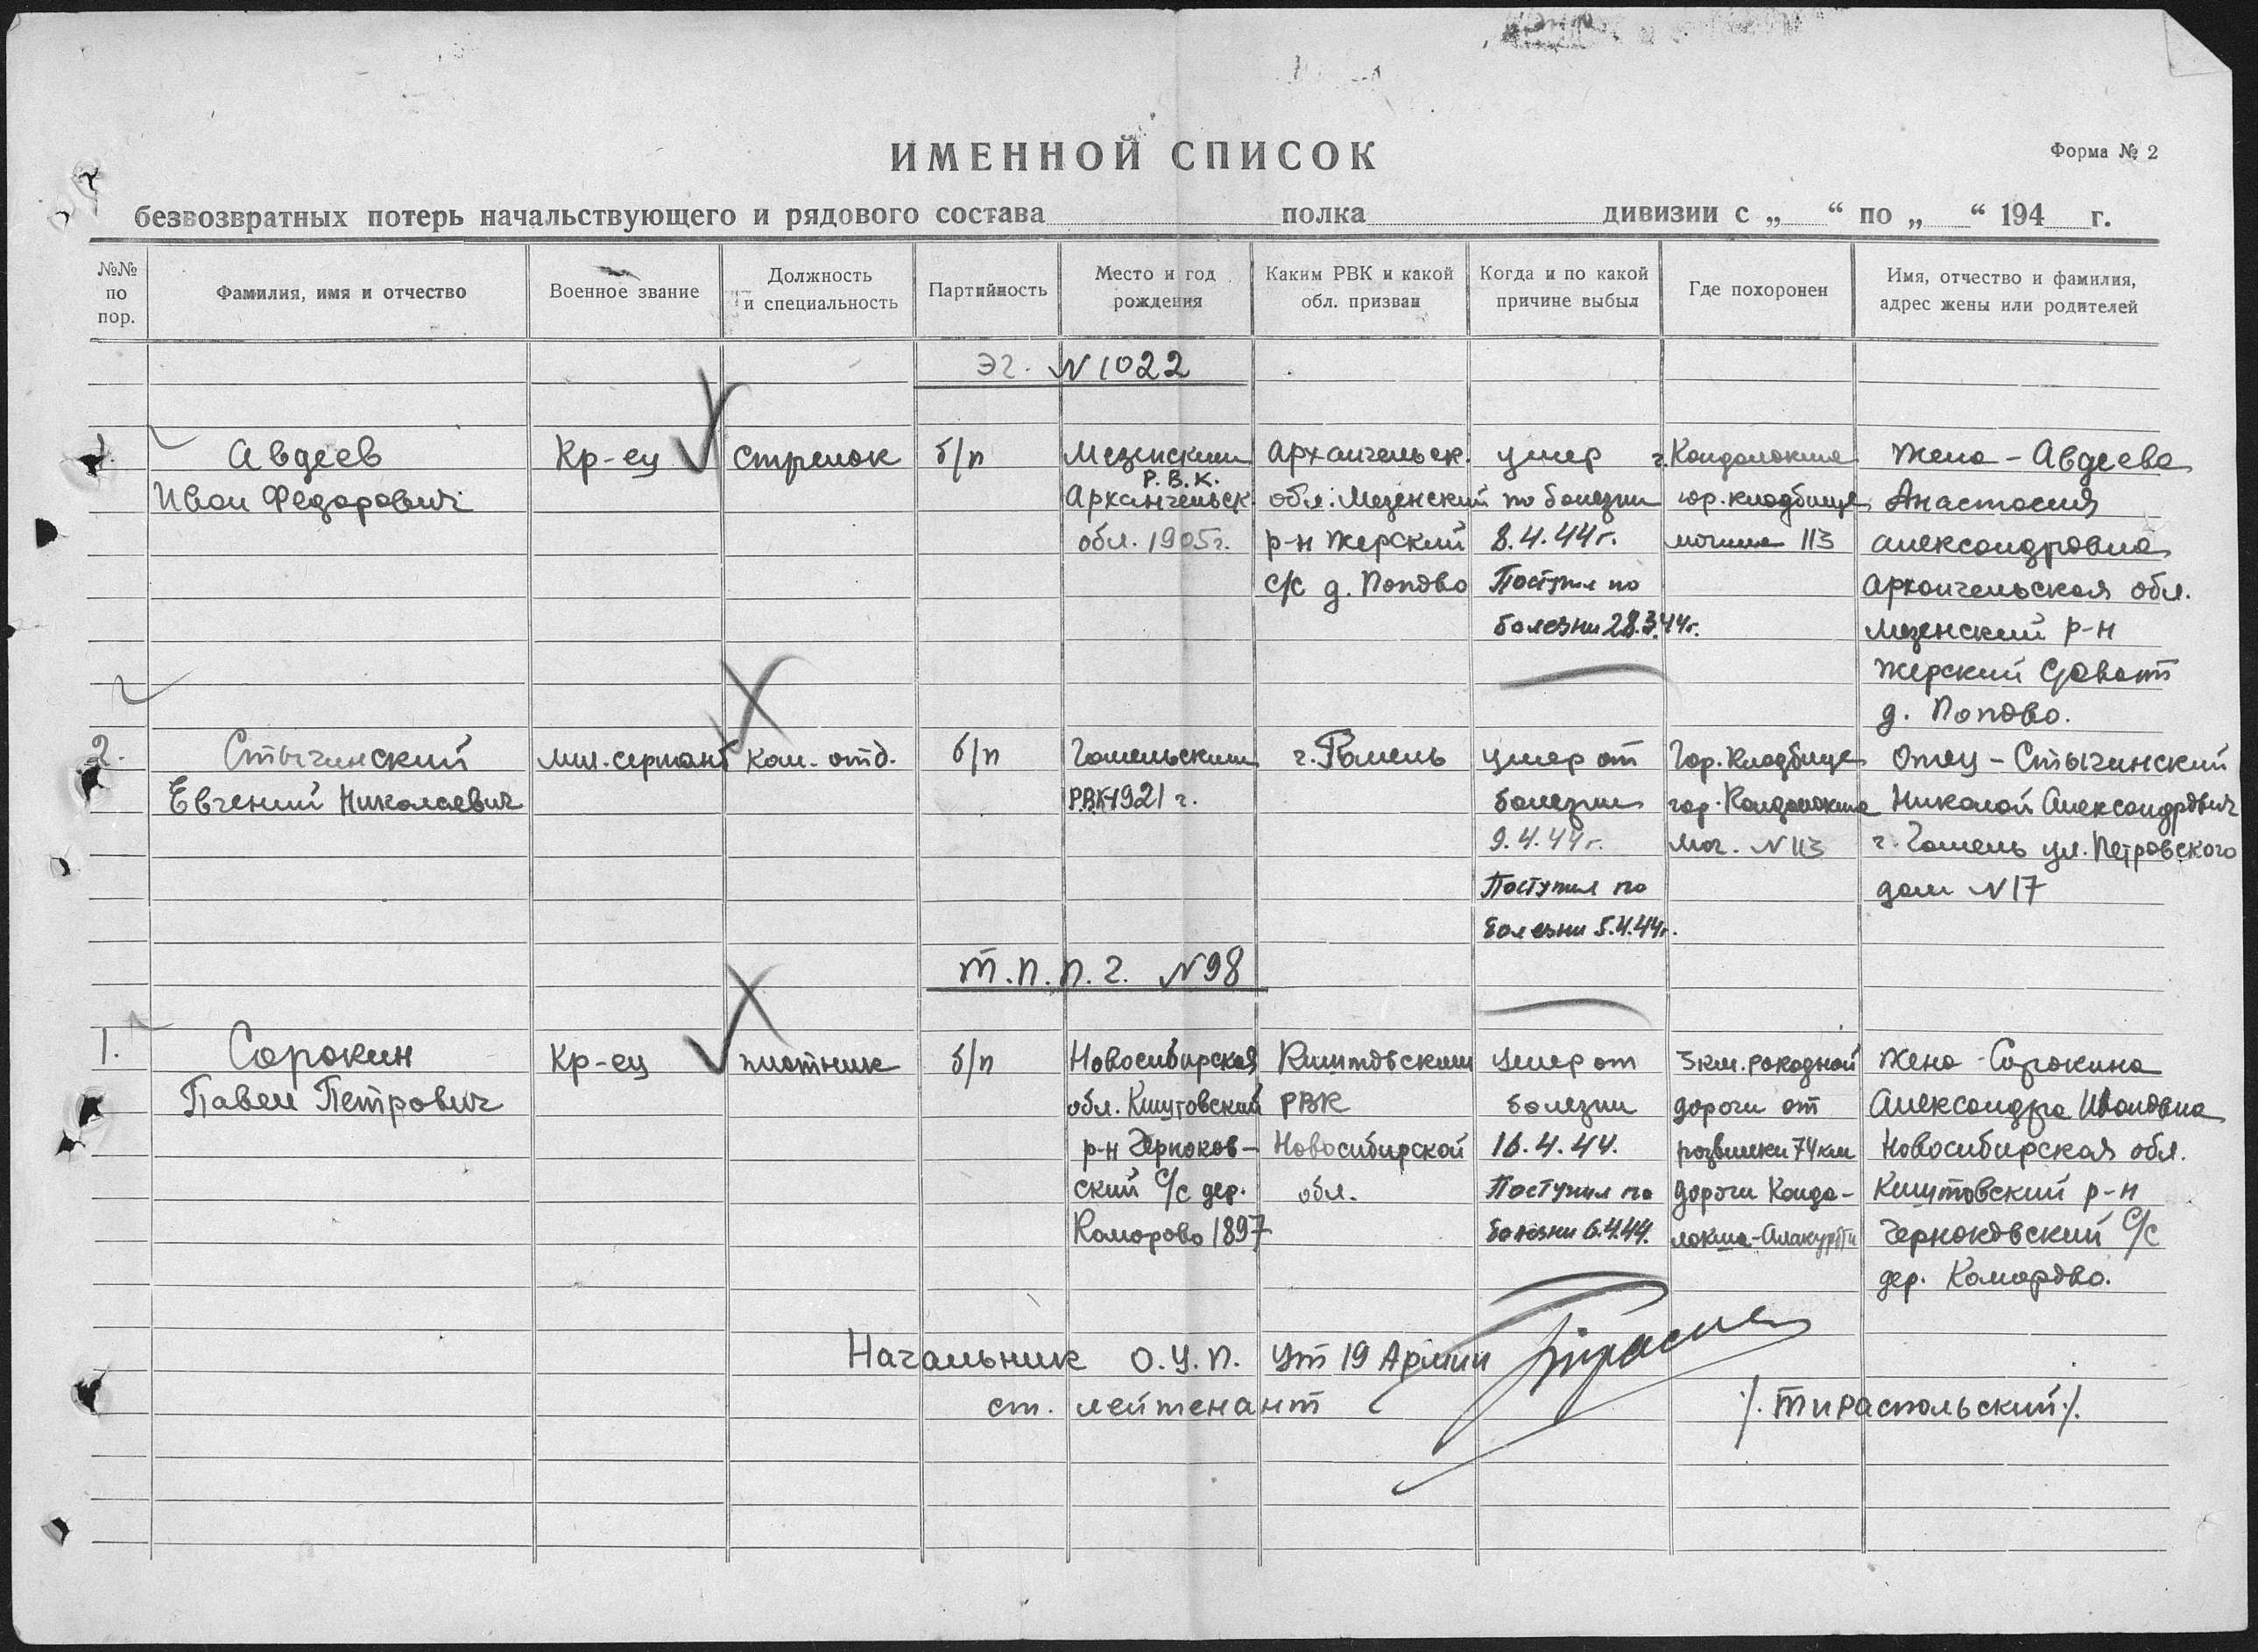 ИМЕННОЙ СПИСОК
Форма № 2
безвозвратных потерь начальствующего и рядового состава полка дивизии с „ “ по „ “ 194 г.
№№ по пор.
Фамилия, имя и отчество
Военное звание
Должность и специальность
Партийность
Место и год рождения
Каким РВК и какой обл. призван
Когда и по какой причине выбыл
Где похоронен
Имя, отчество и фамилия, адрес жены или родителей
ЭГ. N 1022
1.
Авдеев
Иван Федорович
Кр-ец
Стрелок
б/п
Мезенским
Р.В.К.
Архангельск.
обл. 1905г.
Архангельск.
обл. Мезенский
р-н Жерский
с/с д. Попово
умер
по болезни
8.4.44г.
Поступил по
болезни 28.3.44г.
г. Кандалакша
гор. кладбище
могила 113
Жена - Авдеева
Анастасия
Александровна
Архангельская обл.
Мезенский р-н
Жерский Совет
д. Попово.
2.
Стычинский
Евгений Николаевич
Мл. сержант
Ком. отд.
б/п
Гомельским
РВК 1921 г.
г. Гомель
Умер от
болезни
9.4.44г.
Поступил по
болезни 5.4.44г.
Гор. Кладбище
гор. Кандалакша
Мог. N 113
Отец - Стычинский
Николай Александрович
г. Гомель ул. Петровского
дом N 17
Т.П.П.Г. N 98
1.
Сорокин
Павел Петрович
Кр-ец
плотник
б/п
Новосибирская
обл. Киштовский
р-н Черноков-
ский с/с дер.
Коморово 1897
Киштовским
РВК
Новосибирской
обл.
Умер от
болезни
16.4.44.
Поступил по
болезни 6.4.44.
3 км. рокадной
дороги от
развилки 74 км
дороги Канда-
локша-Алакурти
Жена - Сорокина
Александра Ивановна
Новосибирская обл.
Киштовский р-н
Черноковский с/с
дер. Коморово.
Начальник О.У.П. УТ 19 Армии
ст. лейтенант
/. Тираспольский./.